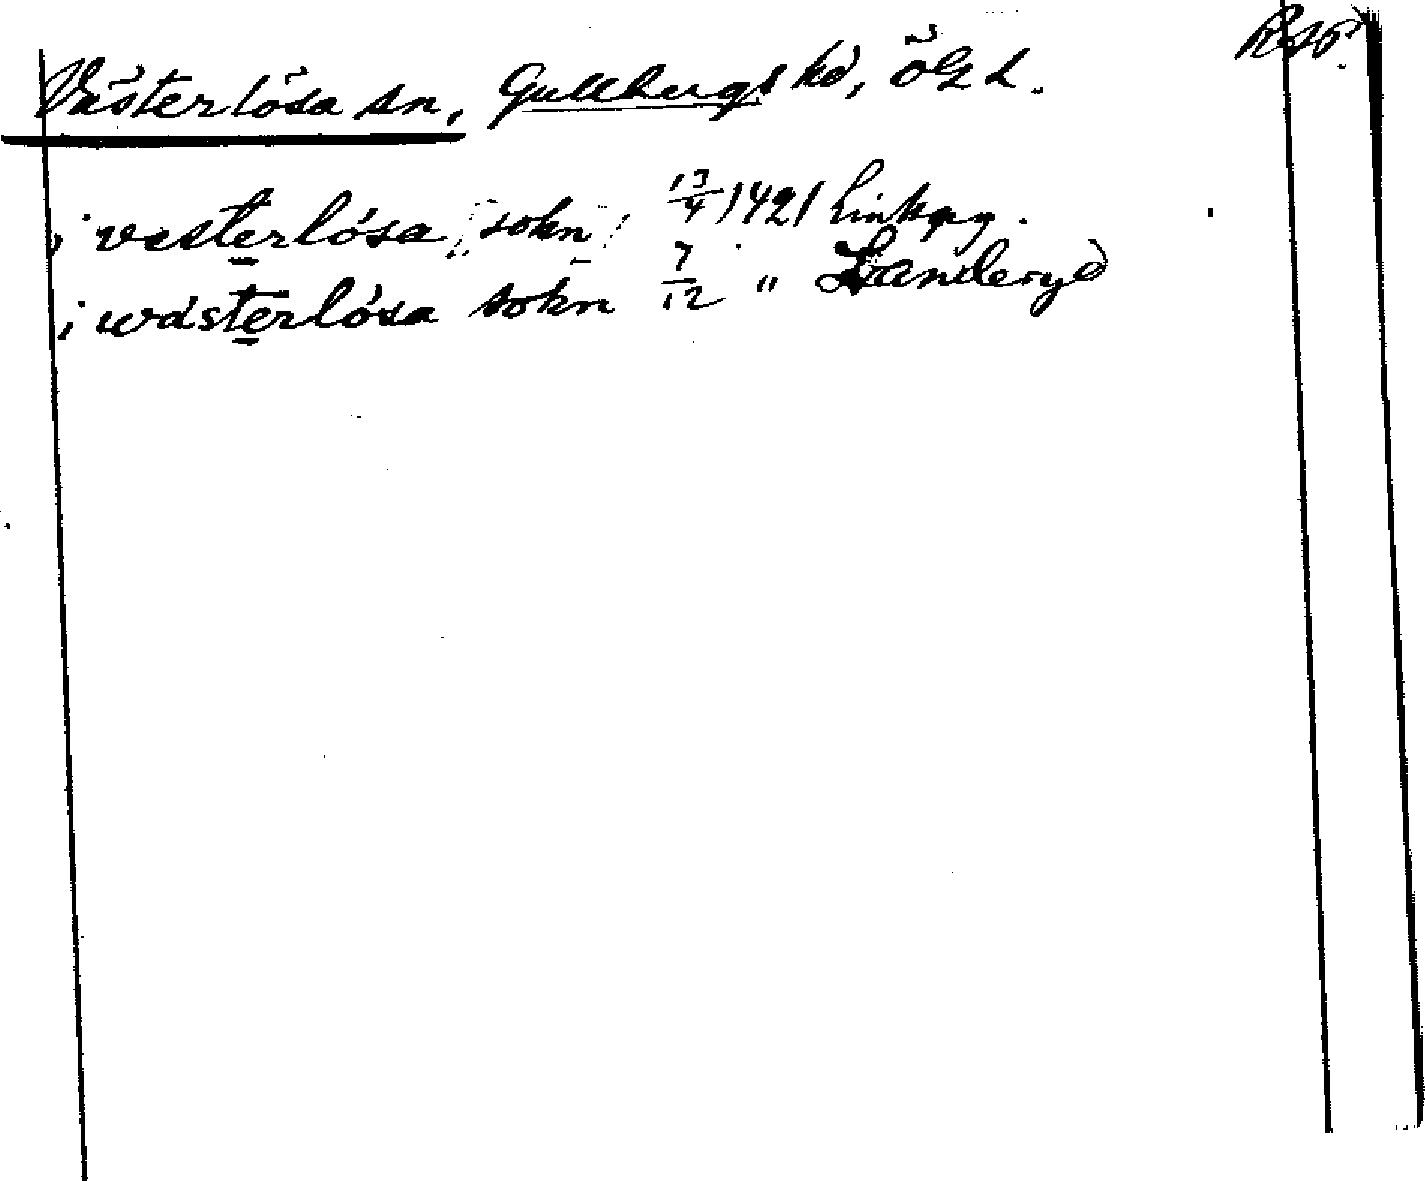 Västerlösa sn, Gullbergs hd, ÖGL.
i vesterlósa sokn 13/4 1421 Linkpg.
i wästerlósa sokn 7/12 " Landeryd